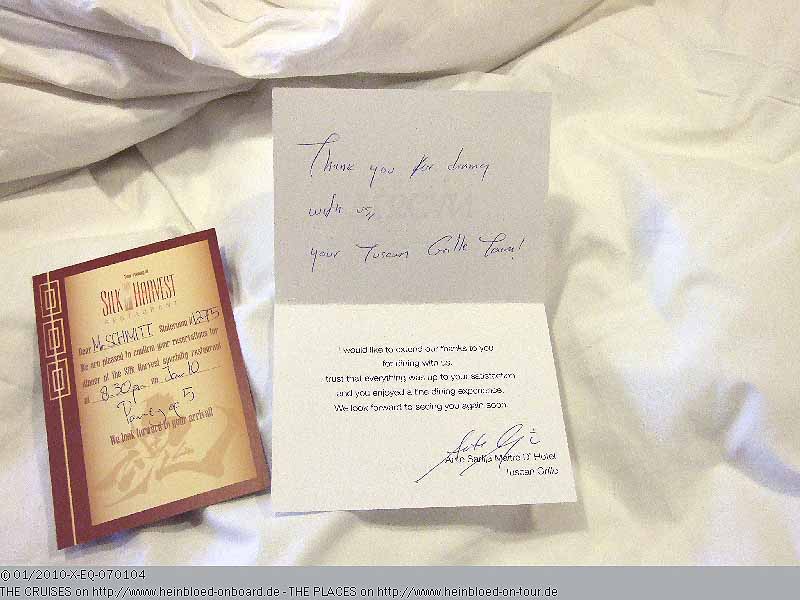 SILK HARVEST
RESTAURANT
Dear Mr. SCHMITT Stateroom #1275
We are pleased to confirm your reservations for
dinner at the Silk Harvest specialty restaurant
at 8.30pm on Jan 10
Party of 5
We look forward to your arrival!
Thank you for dining
with us,
your Tuscan Grille Team!
I would like to extend our thanks to you
for dining with us.
I trust that everything was up to your satisfaction
and you enjoyed a fine dining experience.
We look forward to seeing you again soon.
Maitre D' Hotel
Tuscan Grille
© 01/2010-X-EQ-070104
THE CRUISES on http://www.heinbloed-onboard.de - THE PLACES on http://www.heinbloed-on-tour.de